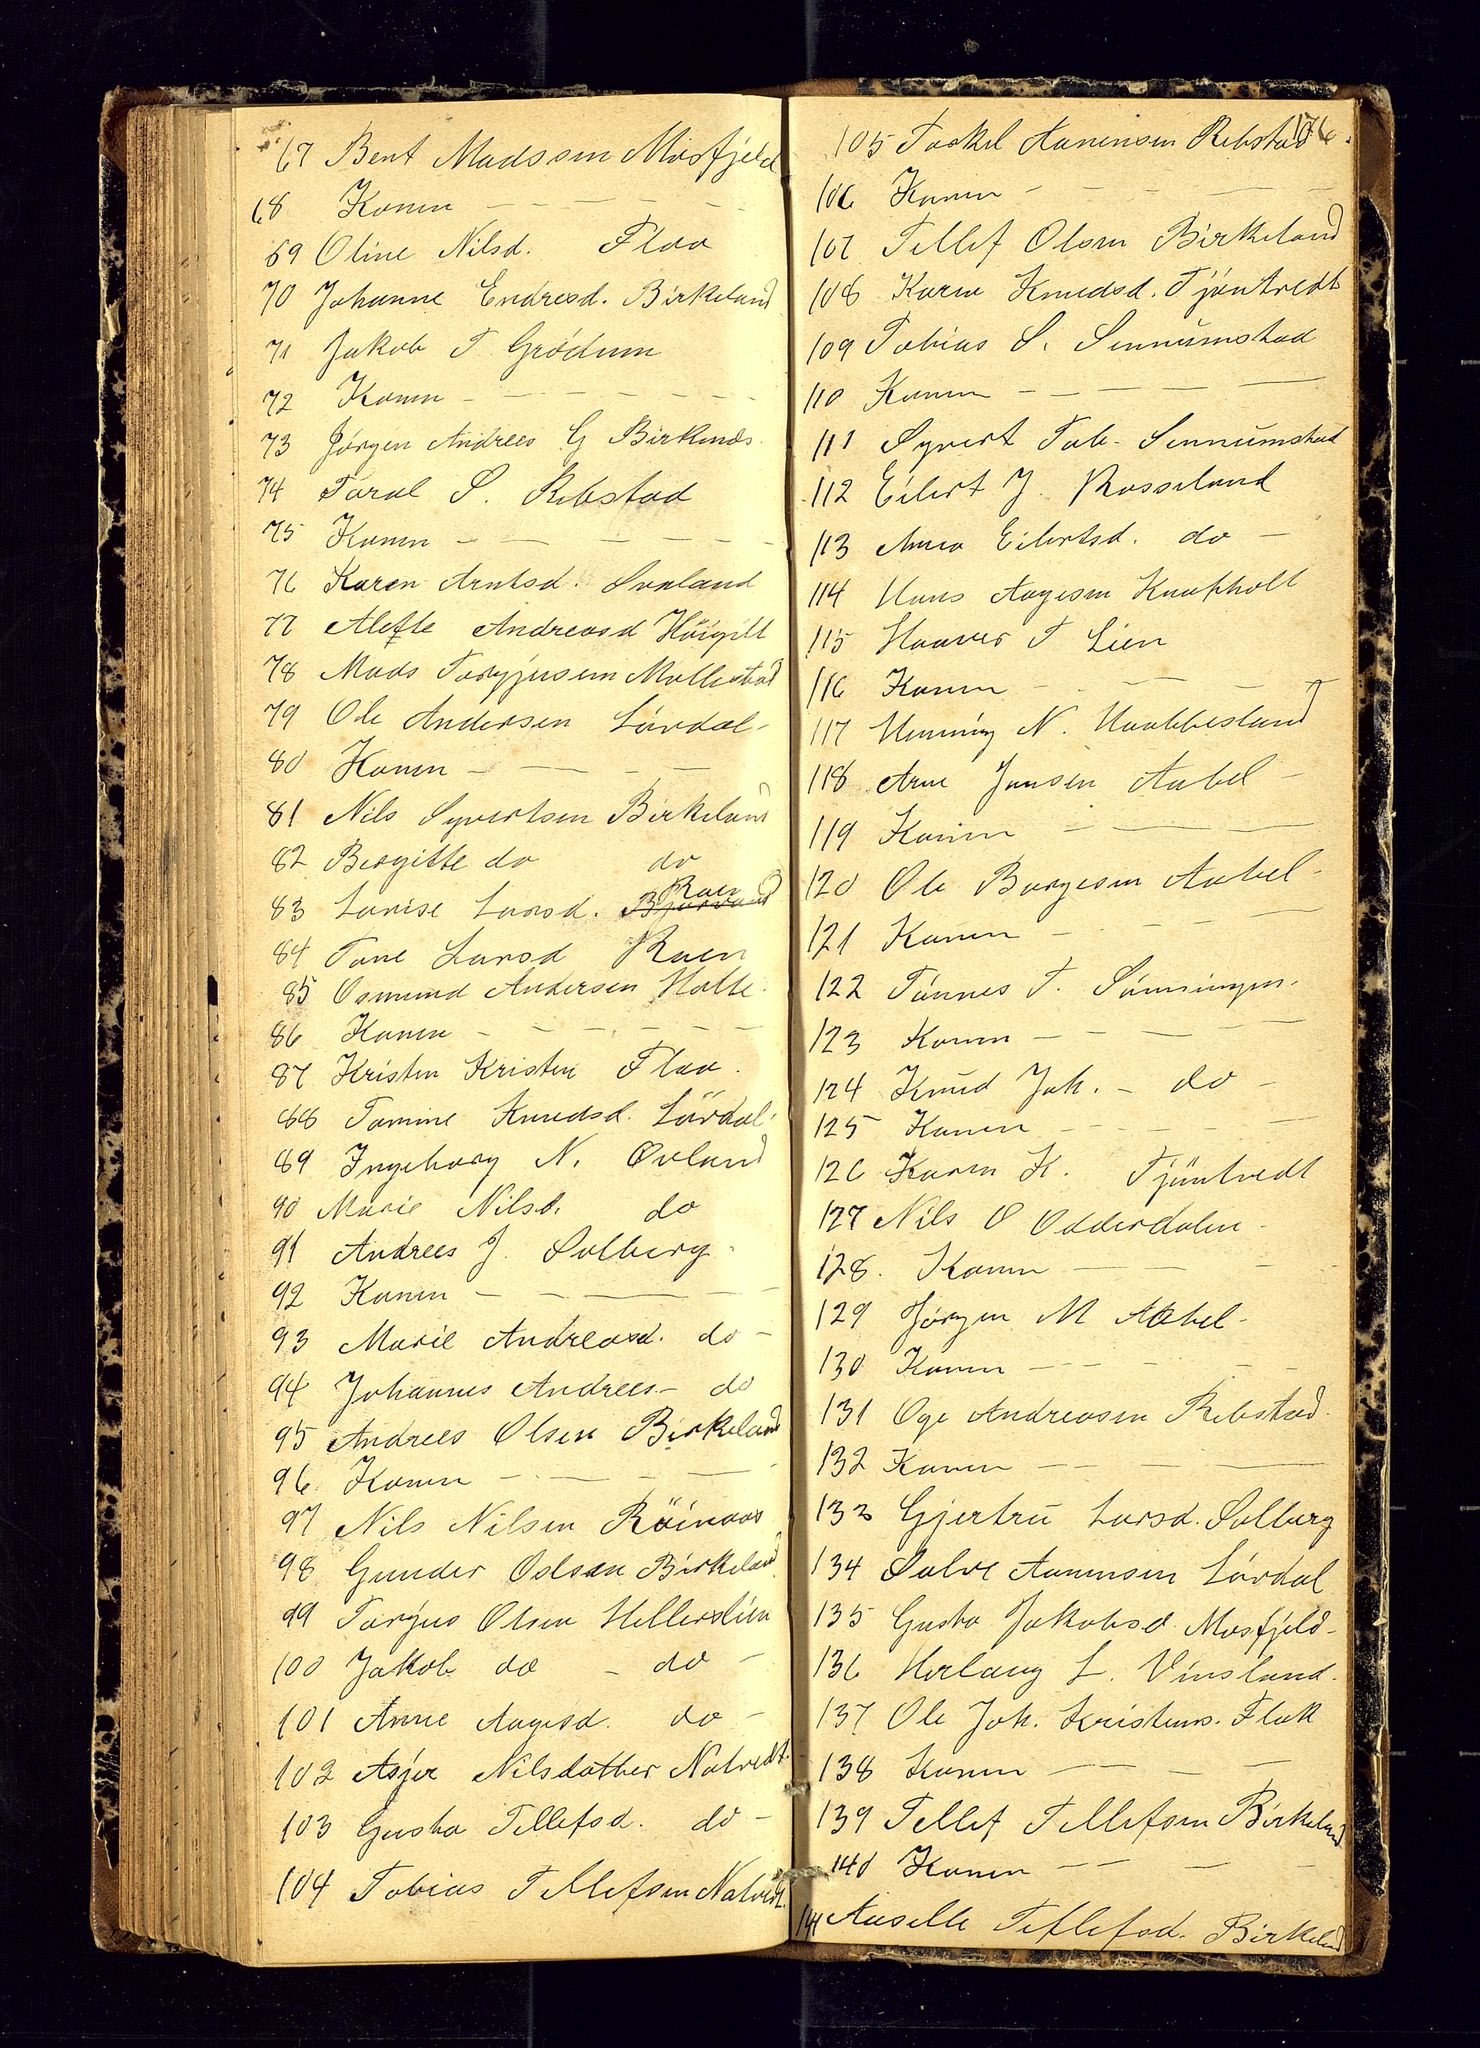 67 Bent Madssen Mosfjeld
68 Konen - - - - -
69 Oline Nilsd. Flaa
70 Johanne Endresd. Birkeland
71 Jakob T. Grødum
72 Konen - - - - - -
73 Jørgen Andreas G Birkends.
74 Taral S. Rebstad
75 Konen - - - - - -
76 Karen Arntsd. Ovaland
77 Alette Andreasd Höigilt
78 Mads Torgjusen Mollestad
79 Ole Andersen Lördal -
80 Konen - - - -
81 Nils Syvertsen Birkeland
82 Bergitte do do
83 Lovise Larsd. Raen
84 Tone Larsd Raen
85 Osmund Andersen Hatte.
86 Konen - - - - - -
87 Kristen Kristen Flaa.
88 Tomine Knudsd. Lördal.
89 Ingeborg N. Øvland
90 Marie Nilsd. do
91 Andrees J. Solberg.
92 Konen - - - - -
93 Marie Andreasd. do -
94 Johannes Andrees - do
95 Andrees Olsen Birkeland
96 Konen - - - - -
97 Nils Nilsen Röinaas
98 Gunder Oslsen Birkeland
99 Torjus Olsen Hellerslien
100 Jakob do - do -
101 Anne Aagesd. do -
102 Asjer Nilsdatter Natvedt.
103 Gusta Tellefsd. do -
104 Tobias Tellefsen Natvedt.
176.
105 Torkel Aanensen Rebstad
106 Konen - - - - -
107 Tellef Olsen Birkeland
108 Karen Knudsd. Tjöntvedt
109 Tobias S. Sennumstad
110 Konen - - - - -
111 Syvert Tob- Sennumstad
112 Eilert J. Rosseland
113 Anna Eilertsd. do -
114 Hans Aagesen Knapholt
115 Haaver T Lien
116 Konen - - - - -
117 Henning N. Haabbesland
118 Arne Jensen Aabel -
119 Konen - - - -
120 Ole Børgesen Aabel -
121 Konen - - - -
122 Tönnes T. Sönningen.
123 Konen - - - -
124 Knud Joh. - do -
125 Konen - - - - -
126 Karen K. Tjöntvedt
127 Nils O Odderdalen -
128. Konen - - - -
129 Jørgen M Aabel -
130 Konen - - - - -
131 Oge Andreasen Rebstad.
132 Konen - - - -
133 Gjertru Larsd. Solberg
134 Salve Aanensen Lördal
135 Gusta Jakobsd. Mosfjeld -
136 Herlaug L. Vinsland.
137 Ole Joh. Kristens. Flak
138 Konen - - - -
139 Tellef Tellefsen Birkeland
140 Konen - - - -
141 Aaselle Tellefsd. Birkeland